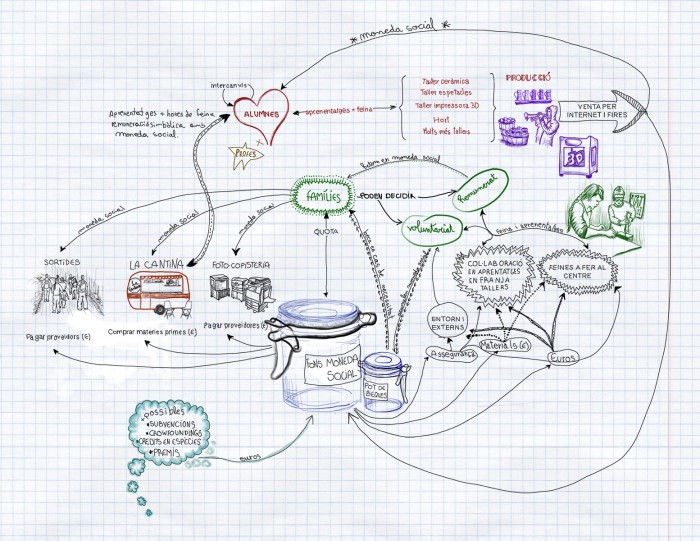 *moneda social*
intercanvis
ALUMNES
PROFES
Aprenentatges + hores de feina
remuneració simbòlica amb
moneda social.
aprenentatges + feina
Taller ceràmica
Taller espelmes
Taller impressora 3D
Hort
Molts més tallers
PRODUCCIÓ
3D
VENTA PER
INTERNET I FIRES
moneda social
FAMÍLIES
PODEN DECIDIR
remunerat
voluntariat
feina i aprenentatge
moneda social
moneda social
moneda social
QUOTA
SORTIDES
LA CANTINA
FOTO-COPISTERIA
Pagar proveïdors (€)
Comprar matèries primes (€)
Pagar proveïdores (€)
COL·LABORACIÓ
EN APRENTATGES
EN FRANJA
TALLERS
FEINES A FER AL
CENTRE
ENTORN I
EXTERNS
Assegurança
Materials (€)
Euros
FONS MONEDA
SOCIAL
POT DE
BEQUES
*possibles
•SUBVENCIONS
•CROWFOUNDINGS
•CREDITS EN ESPÈCIES
•PREMIS
euros